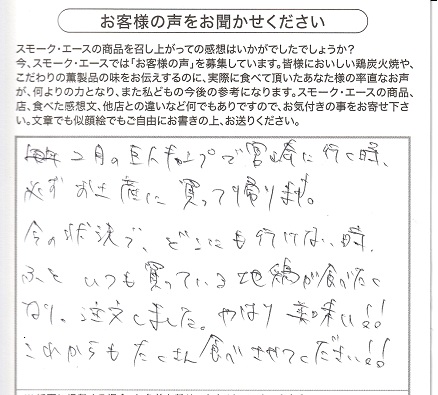 お客様の声をお聞かせください
スモーク・エースの商品を召し上がっての感想はいかがでしたでしょうか?
今、スモーク・エースでは「お客様の声」を募集しています。皆様においしい鶏炭火焼や、
こだわりの薫製品の味をお伝えするのに、実際に食べて頂いたあなた様の率直なお声
が、何よりの力となり、また私どもの今後の参考になります。スモーク・エースの商品、
店、食べた感想文、他店との違いなど何でもありですので、お気付きの事をお寄せ下さ
い。文章でも似顔絵でもご自由にお書きの上、お送りください。
毎年2月の巨人キャンプで宮崎に行く時、
必ずお土産に買って帰ります。
今の状況で、どこにも行けない時、
ふと いつも買っている地鶏が食べたく
なり、注文しました。やはり美味い!!
これからもたくさん食べさせてください!!